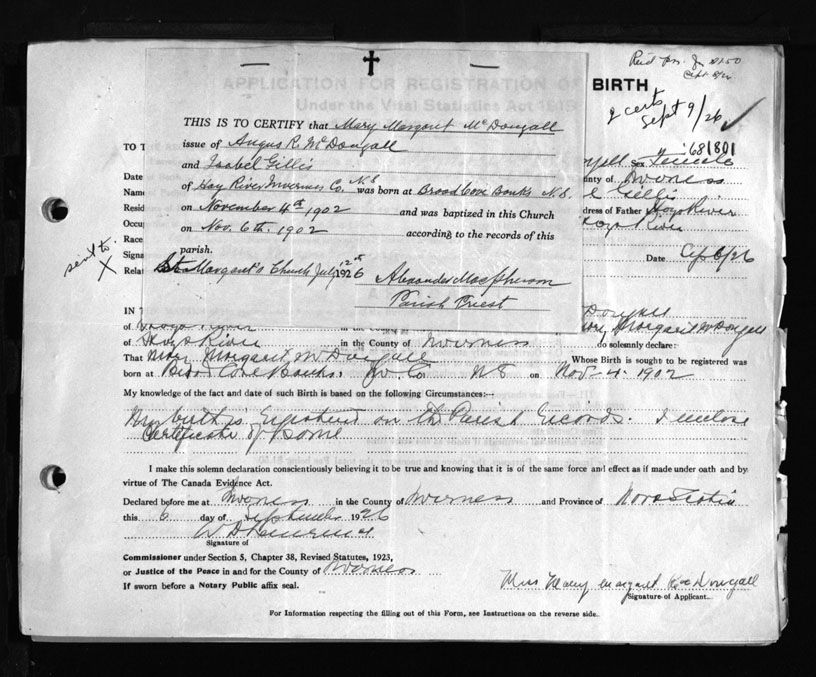 Sept 9/26
APPLICATION FOR REGISTRATION OF BIRTH
Under the Vital Statistics Act 1919
681801
THIS IS TO CERTIFY that Mary Margaret McDougall
issue of Angus R. McDougall
and Isabel Gillis
of Hay River Inverness Co. N.S. was born at Broad Cove Banks N.S.
on November 4th 1902 and was baptized in this Church
on Nov. 6th. 1902 according to the records of this
parish.
St. Margaret's Church July 12th 1926 Alexander Macpherson
Parish Priest
TO T
Date
Name
Resid
Occu
Race
Signa
Rela
sent to
X
Sex Female
nty of Inverness
Gillis
dress of Father Hays River
Hays River
Date
IN T
Margaret McDougall
of Hays River in the County of Inverness do solemnly declare:
That Mary Margaret McDougall Whose Birth is sought to be registered was
born at Broad Cove Banks, Inv. Co. N S on Nov - 4. 1902
My knowledge of the fact and date of such Birth is based on the following Circumstances:—
My birth is registered on the Parish Records. I enclose
Certificate of Same
I make this solemn declaration conscientiously believing it to be true and knowing that it is of the same force and effect as if made under oath and by
virtue of The Canada Evidence Act.
Declared before me at Inverness in the County of Inverness and Province of Nova Scotia
this 6 day of September 1926
Signature of
Commissioner under Section 5, Chapter 38, Revised Statutes, 1923,
or Justice of the Peace in and for the County of Inverness
If sworn before a Notary Public affix seal.
Miss Mary Margaret Mac Dougall
Signature of Applicant.
For Information respecting the filling out of this Form, see Instructions on the reverse side.